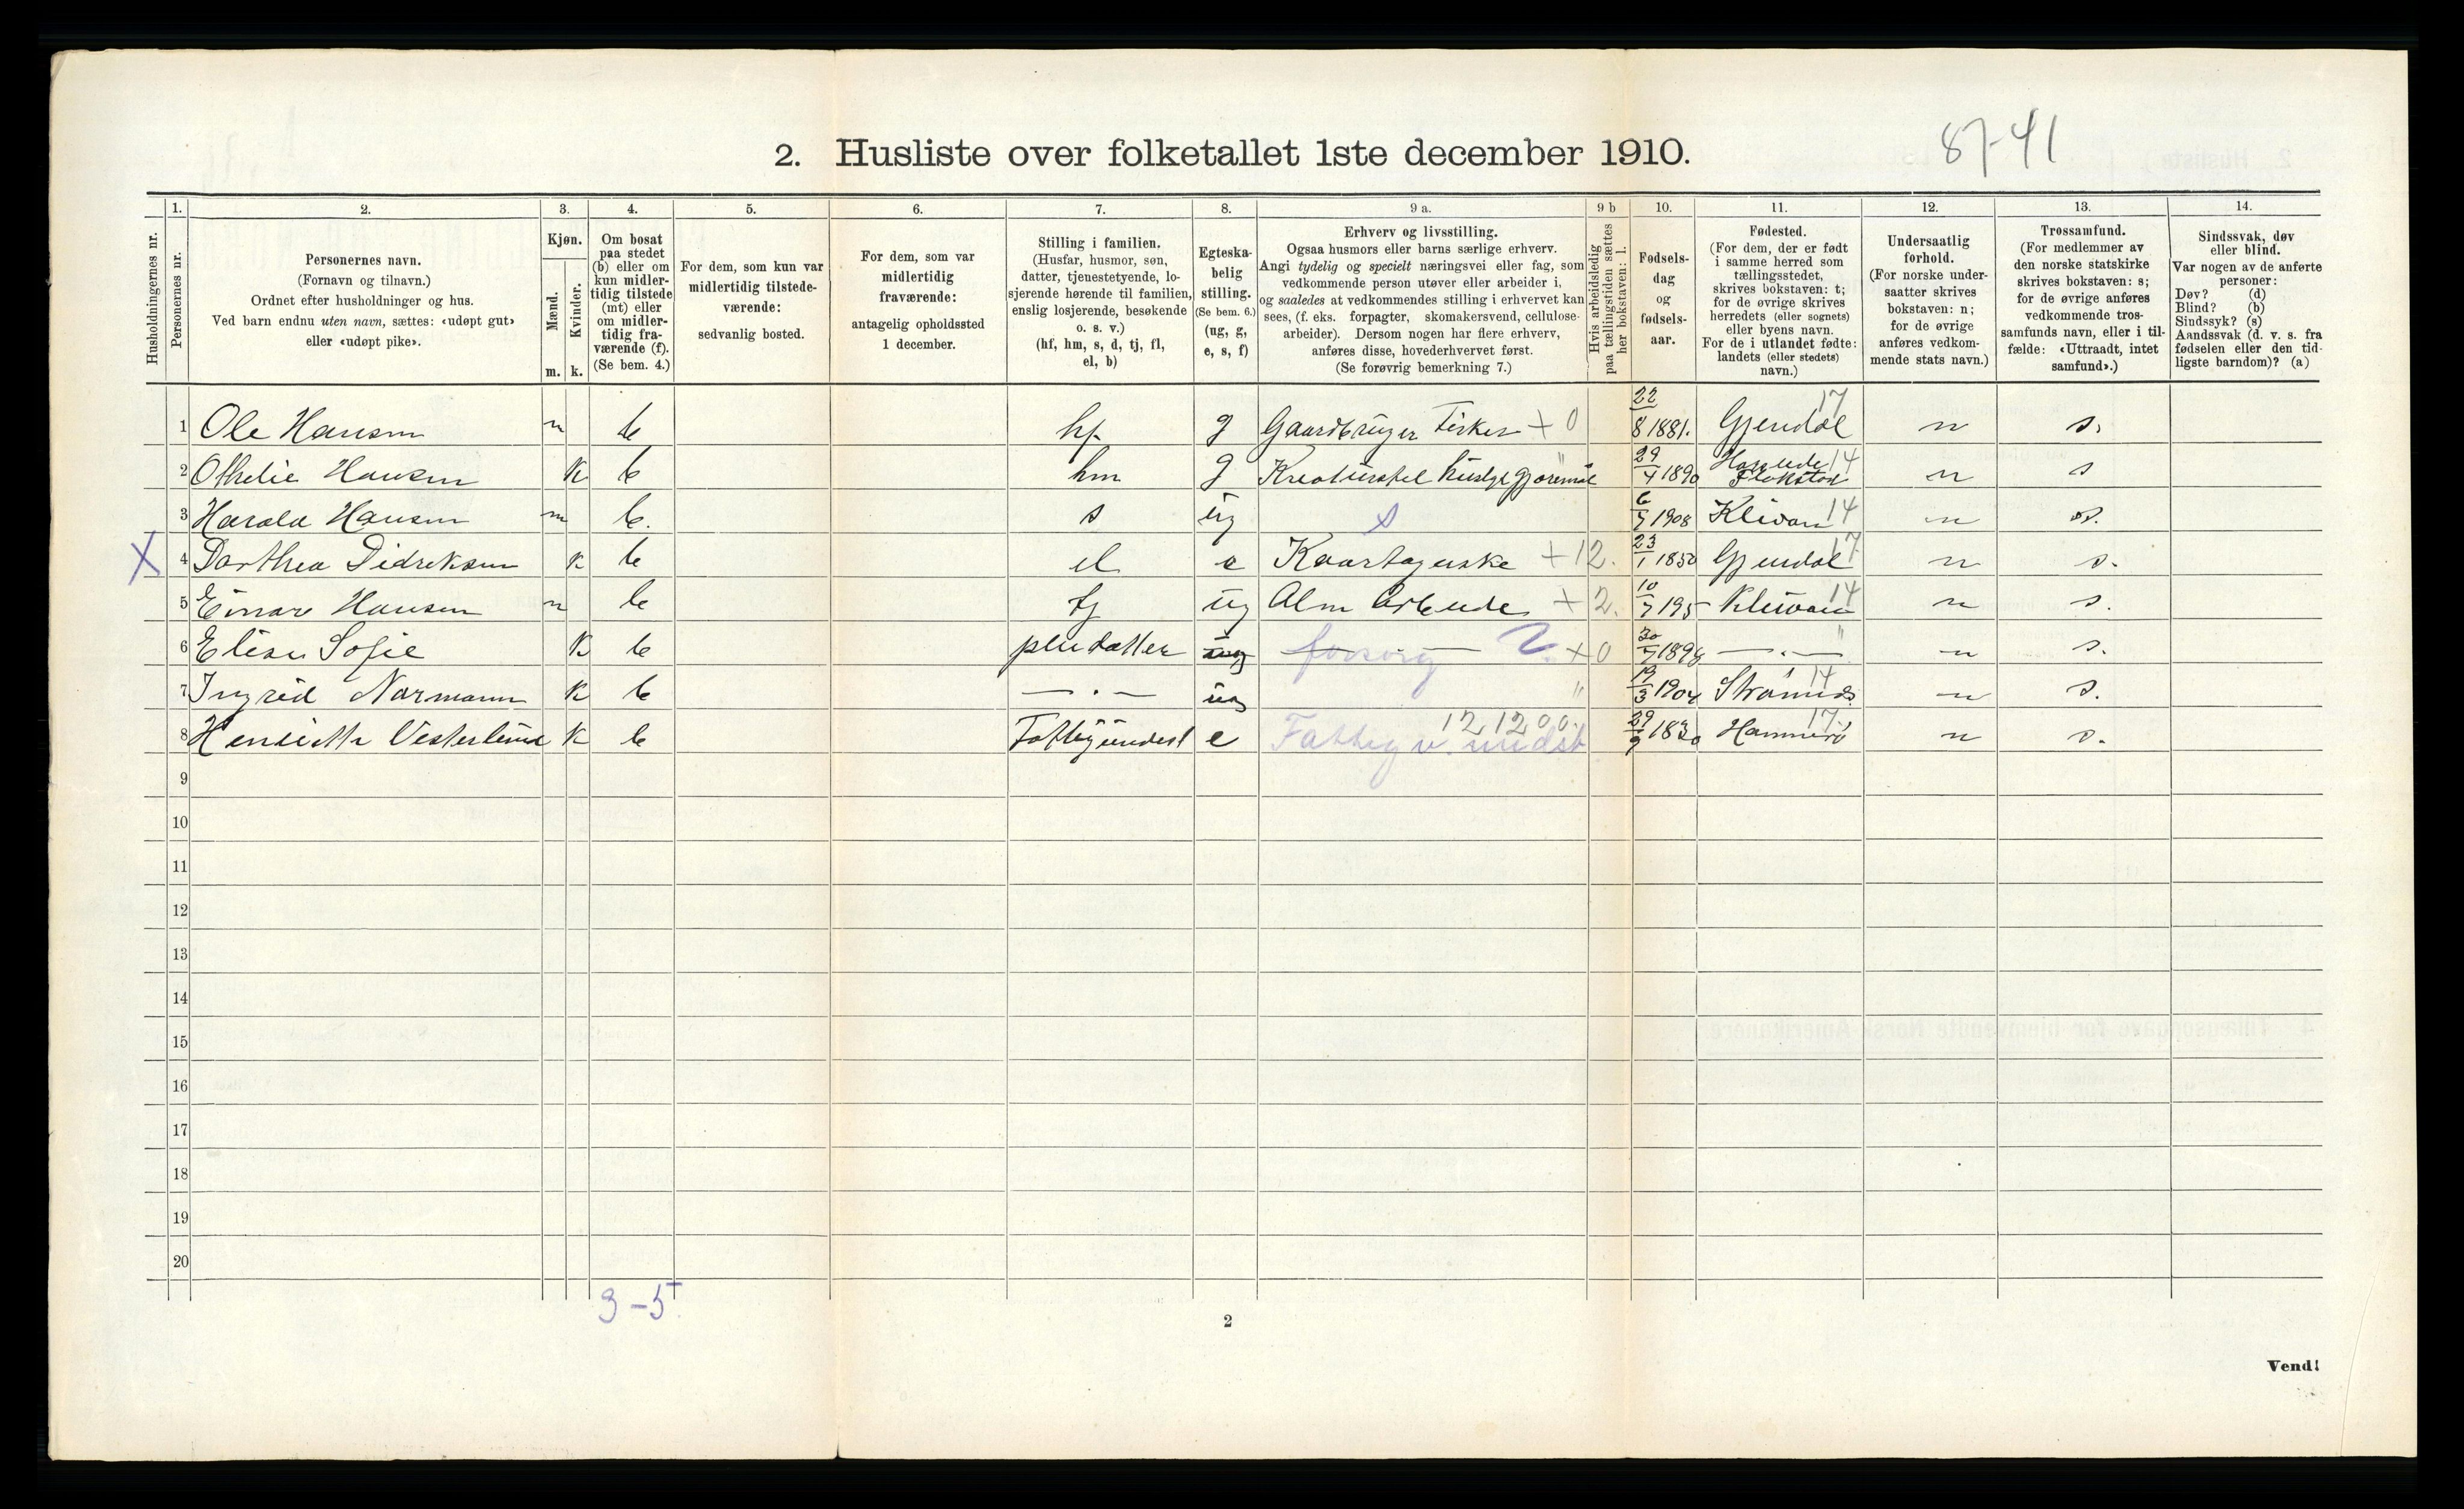 87-41
2. Husliste over folketallet 1ste december 1910.
Husholdningernes nr.
1. Personernes nr.
2. Personernes navn. (Fornavn og tilnavn.) Ordnet efter husholdninger og hus. Ved barn endnu uten navn, sættes: «udøpt gut» eller «udøpt pike».
3. Kjøn. Mænd. m. Kvinder. k.
4. Om bosat paa stedet (b) eller om kun midlertidig tilstede (mt) eller om midlertidig fraværende (f). (Se bem. 4.)
5. For dem, som kun var midlertidig tilstedeværende: sedvanlig bosted.
6. For dem, som var midlertidig fraværende: antagelig opholdssted 1 december.
7. Stilling i familien. (Husfar, husmor, søn, datter, tjenestetyende, losjerende hørende til familien, enslig losjerende, besøkende o. s. v.) (hf, hm, s, d, tj, fl, el, b)
8. Egteskabelig stilling. (Se bem. 6.) (ug, g, e, s, f)
9 a. Erhverv og livsstilling. Ogsaa husmors eller barns særlige erhverv. Angi tydelig og specielt næringsvei eller fag, som vedkommende person utøver eller arbeider i, og saaledes at vedkommendes stilling i erhvervet kan sees, (f. eks. forpagter, skomakersvend, cellulosearbeider). Dersom nogen har flere erhverv, anføres disse, hovederhvervet først. (Se forøvrig bemerkning 7.)
9 b Hvis arbeidsledig paa tællingstiden sættes her bokstaven: l.
10. Fødselsdag og fødselsaar.
11. Fødested. (For dem, der er født i samme herred som tællingsstedet, skrives bokstaven: t; for de øvrige skrives herredets (eller sognets) eller byens navn. For de i utlandet fødte: landets (eller stedets) navn.)
12. Undersaatlig forhold. (For norske undersaatter skrives bokstaven: n; for de øvrige anføres vedkommende stats navn.)
13. Trossamfund. (For medlemmer av den norske statskirke skrives bokstaven: s; for de øvrige anføres vedkommende trossamfunds navn, eller i tilfælde: «Uttraadt, intet samfund».)
14. Sindssvak, døv eller blind. Var nogen av de anførte personer: Døv? (d) Blind? (b) Sindssyk? (s) Aandssvak (d. v. s. fra fødselen eller den tidligste barndom)? (a)
1 Ole Hansen m b hf g Gaardbruger Fisker + 0 22/8 1881. Gjendal 17 n s.
2 Othelie Hansen K b hm g Kreaturstel huslge gjøremål " 29/4 1890 Flakstad 14 n s
3 Harald Hansen m b. s ug s 6/7 1908 Klivan 14 n s.
X 4 Dorthea Didreksen K b el e Kaartagerske + 12. 23/1 1850 Gjendal 17 n s.
5 Einar Hansen m b tj ug Alm Arbeide + 2. 10/7 195 Klivan 14 n s.
6 Elise Sofie K b pleidatter ug forsørg + 0 30/7 1898 — . — " n s.
7 Ingrid Normann K b — . — ug " 19/3 1904 14 n s.
8 Henriette Vesterlund K b Fattigunderst e Fattig v. undst 12 1200. 29/9 1830 Hammerø 17 n s.
9
10
11
12
13
14
15
16
17
18
19
20
3-5
2
Vend!